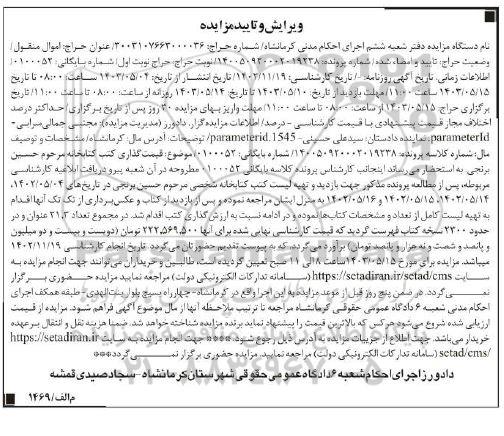 ویرایش و تایید مزایده
نام دستگاه مزایده دفتر شعبه ششم اجرای احکام مدنی کرمانشاه/ شماره حراج: 3003107663000036/ عنوان حراج: اموال منقول/
وضعیت حراج: تایید و امضاء شده/ شماره پرونده: 140050920002019238/ نوبت حراج: حراج نوبت اول/ شماره بایگانی: 0100052/
اطلاعات زمانی: تاریخ آگهی روزنامه: -/ تاریخ کارشناسی: 1402/11/19/ تاریخ انتشار از تاریخ: 1403/05/04 ساعت: 08:00 تا تاریخ
1403/05/15 ساعت: 11:00/ مهلت بازدید از تاریخ: 1403/05/10 تا تاریخ: 1403/05/14 روزانه از ساعت: 08:00 تا ساعت: 11:00/ تاریخ
برگزاری حراج: 1403/05/15 از ساعت: 08:00 تا ساعت: 11:00/ مهلت واریز بهای مزایده 30 روز پس از تاریخ برگزاری/ حداکثر درصد
اختلاف مجاز قیمت پیشنهادی با قیمت کارشناسی - درصد/ اطلاعات مزایده گزار، دادورز (مدیریت مزایده): مجتبی جمالی سرابی -
parameterId: نماینده دادستان: سیدعلی حسینی- parameterid.1545/ توضیحات: آدرس مال: کرمانشاه/ مشخصات و توصیف
مال: شماره کلاسه پرونده: 140050920002019238 شماره بایگانی: 0100052 موضوع: قیمت گذاری کتب کتابخانه مرحوم حسین
برنجی. به استحضار می رساند اینجانب کارشناس پرونده کلاسه بایگانی 0100052 مطروحه در آن شعبه پیرو دریافت ابلاغیه کارشناسی
مربوطه، پس از مطالعه پرونده مذکور جهت بازدید و تهیه لیست کتب کتابخانه شخصی مرحوم حسین برنجی در تاریخ های 1402/05/04،
1402/05/14، 1402/05/15 و 1402/05/16 به منزل ایشان مراجعه نموده و پس از بازدید از کتاب و عکس برداری از تک تک آنها اقدام
به تهیه لیست کامل از تعداد و مشخصات کتاب ها نموده و در ادامه نسبت به ارزش گذاری کتب اقدام شد. در مجموع تعداد 2,13 عنوان و در
حدود 2300 نسخه کتاب فهرست گردید که قیمت کارشناسی نهایی شده برای آنها 222,569,500 تومان (دویست و بیست و دو میلیون
و پانصد و شصت و نه هزار و پانصد تومان) برآورد می گردد، که به پیوست تقدیم حضورتان می گردد. تاریخ انجام کارشناسی 1402/11/19
میباشد. مزایده برای مورخ 1403/05/15 ساعت 8 الی 11 صبح تعیین گردیده است. طالبین و خریداران می توانند جهت انجام مزایده به
سایت https://setadiran.ir/setad/cms (سامانه تدارکات الکترونیکی دولت) مراجعه نمایند مزایده حضوری برگزار
نمی گردد. در ضمن پنج روز قبل از موعد مزایده به این اجرا واقع در کرمانشاه- چهارراه بسیج بلوار بنت الهدی- طبقه همکف اجرای
احکام مدنی شعبه 6 دادگاه عمومی حقوقی کرمانشاه مراجعه تا ترتیب ملاحظه آنها از مال موضوع آگهی فراهم شود. مزایده از قیمت
ارزیابی شده شروع می شود هر کس که بالاترین قیمت را پیشنهاد نماید برنده مزایده شناخته خواهد شد. ضمنا هزینه نقل و انتقال بر عهده
خریدار می باشد. جهت اطلاع از جزییات مزایده به آدرس ذیل رجوع شود *** جهت انجام مزایده به سایت https://setadiran.ir
/setad/cms (سامانه تدارکات الکترونیکی دولت) مراجعه نمایید. مزایده حضوری برگزار نمی گردد***
دادورز اجرای احکام شعبه 6 دادگاه عمومی حقوقی شهرستان کرمانشاه- سجاد صیدی قمشه
م الف/1469